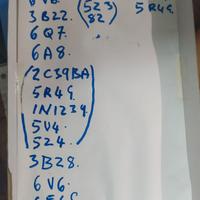 3B22. (523
82)
5R4G.
6Q7.
6A8.
(2C39BA)
5R4G.
1N1239
5V4.
524.
3B28.
6V6.